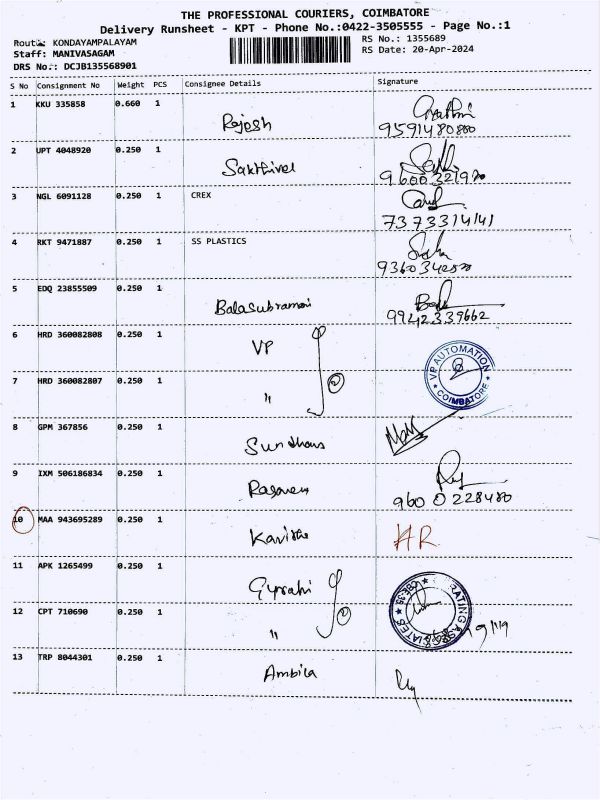 THE PROFESSIONAL COURIERS, COIMBATORE
Delivery Runsheet - KPT - Phone No.:0422-3505555 - Page No.:1
Route: KONDAYAMPALAYAM
RS No.: 1355689
Staff: MANIVASAGAM
RS Date: 20-Apr-2024
DRS No.: DCJB135568901
S No Consignment No Weight PCS Consignee Details Signature
1 KKU 335858 0.660 1
Rajesh
9591480880
2 UPT 4048920 0.250 1
Sakthivel
3 NGL 6091128 0.250 1 CREX
7373314141
4 RKT 9471887 0.250 1 SS PLASTICS
5 EDQ 23855509 0.250 1
Balasubramani
9942339662
6 HRD 360082808 0.250 1
VP
VP AUTOMATION
COIMBATORE
7 HRD 360082807 0.250 1
"
2
8 GPM 367856 0.250 1
9 IXM 506186834 0.250 1
9600228480
10 MAA 943695289 0.250 1
HR
11 APK 1265499 0.250 1
12 CPT 710690 0.250 1
"
2
13 TRP 8044301 0.250 1
Ambika